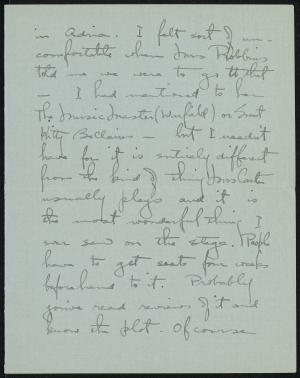 in Adrea. I felt sort of un-
comfortable when Miss Robbins
told me we were to go to that
— I had mentioned to her
The Music Master (Warfield) or Sweet
Kitty Bellairs — but I needn't
have for it is entirely different
from the kind of thing Mrs Carter
usually plays and it is
the most wonderful thing I
ever saw on the stage. People
have to get seats four weeks
beforehand to it. Probably
you've read reviews of it and
know the plot. Of course